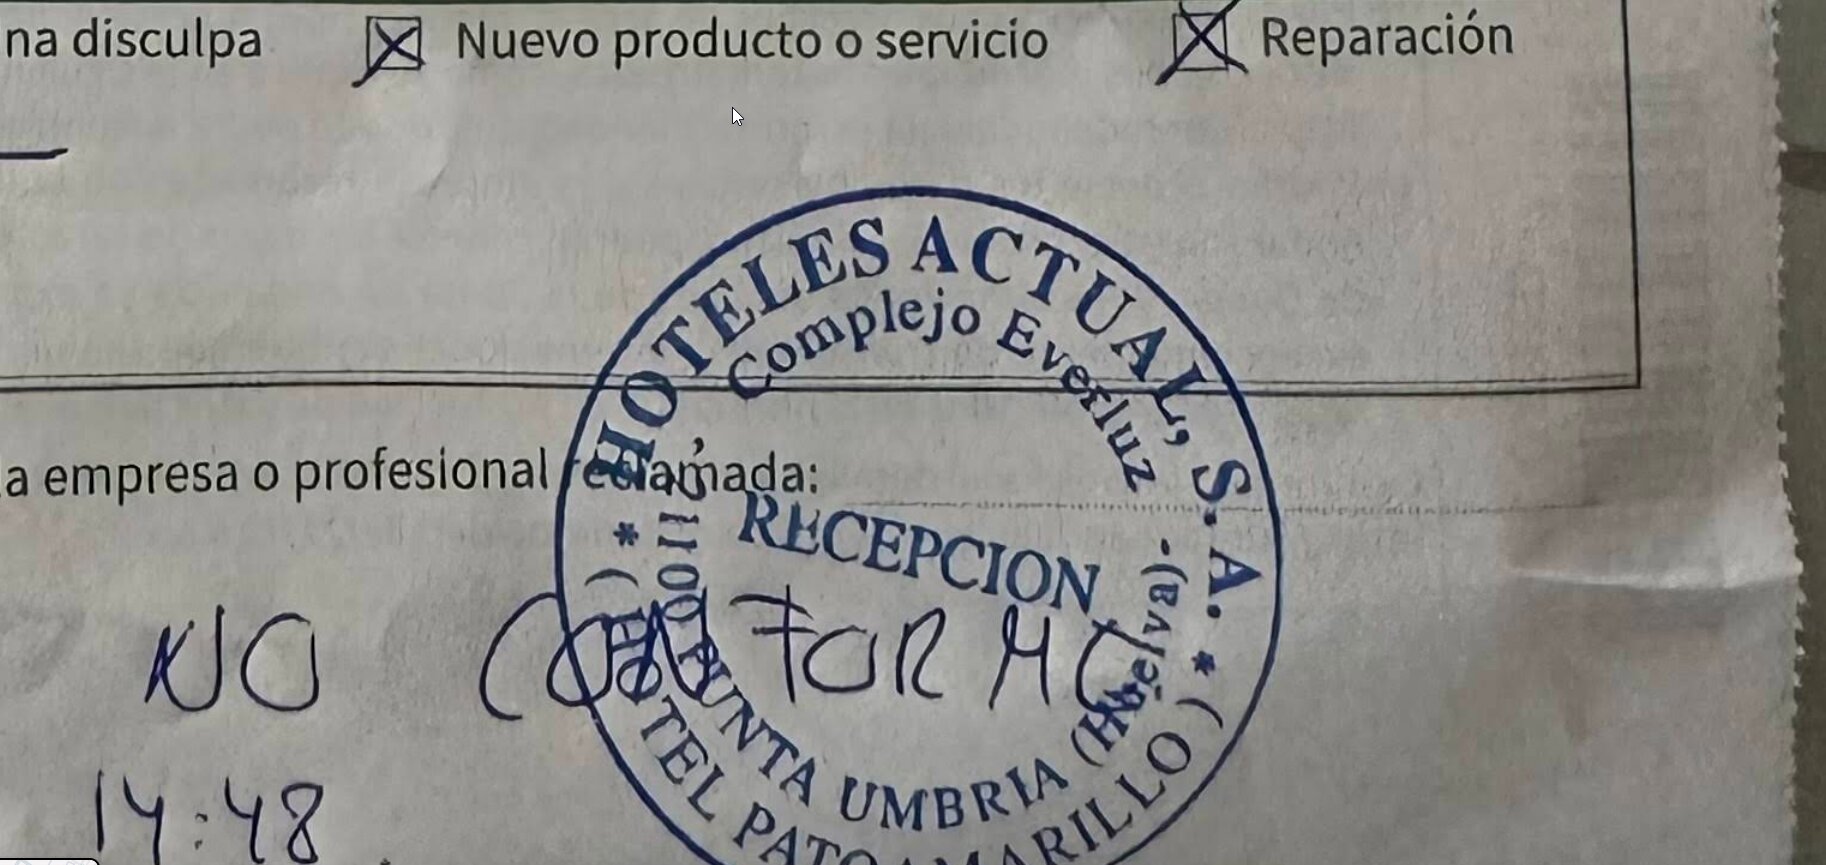 na disculpa Nuevo producto o servicio Reparación
HOTELES ACTUAL, S. A.
Complejo Everluz
a empresa o profesional reclamada:
RECEPCION
PUNTA UMBRIA (Huelva).
(HOTEL PATO AMARILLO)
NO CONFORME
14:48